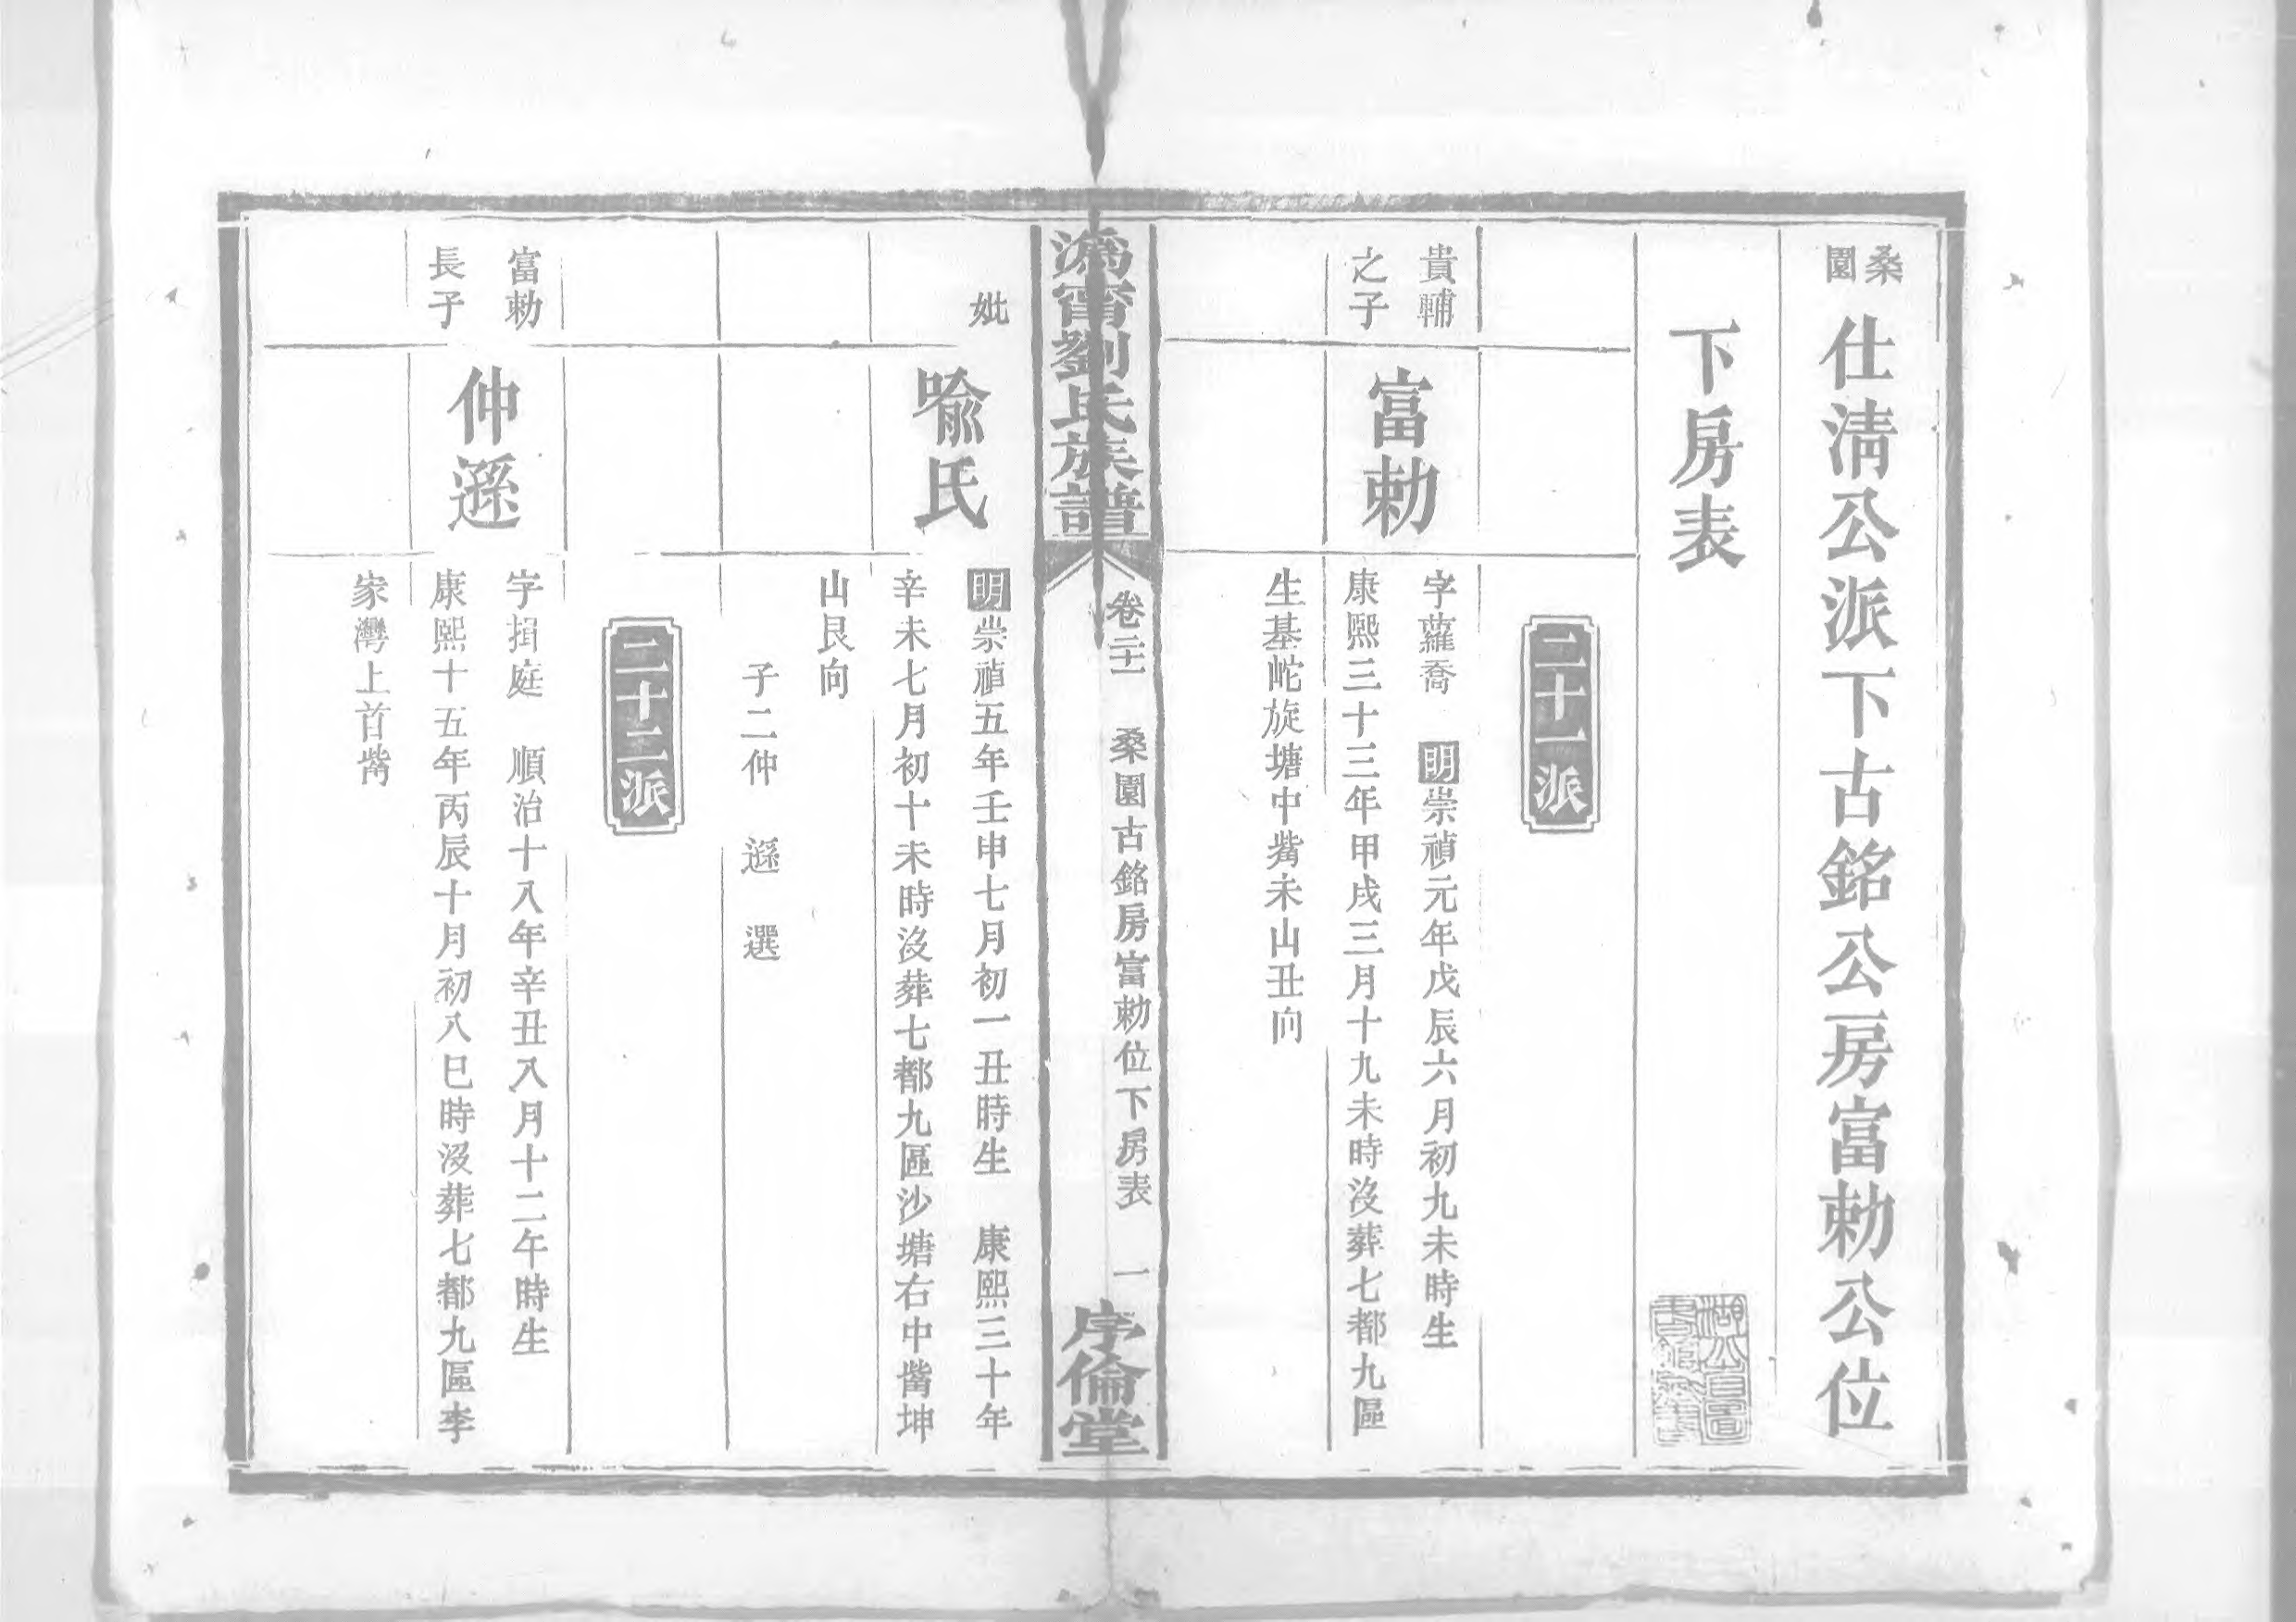 桑園仕淸公派下古銘公房富勅公位
下房表
二十一派
貴輔
之子
富勅
字蘿喬　明崇禎元年戊辰六月初九未時生
康熙三十三年甲戌三月十九未時沒葬七都九區
生基岮旋塘中觜未山丑向
溈甯劉氏族譜
卷二十一　桑園古銘房富勅位下房表　一
序倫堂
妣
喻氏
明崇禎五年壬申七月初一丑時生　康熙三十年
辛未七月初十未時沒葬七都九區沙塘右中觜坤
山艮向
子二仲　遜　選
二十二派
富勅
長子
仲遜
字揖庭　順治十八年辛丑八月十二午時生
康熙十五年丙辰十月初八巳時沒葬七都九區李
家灣上首觜